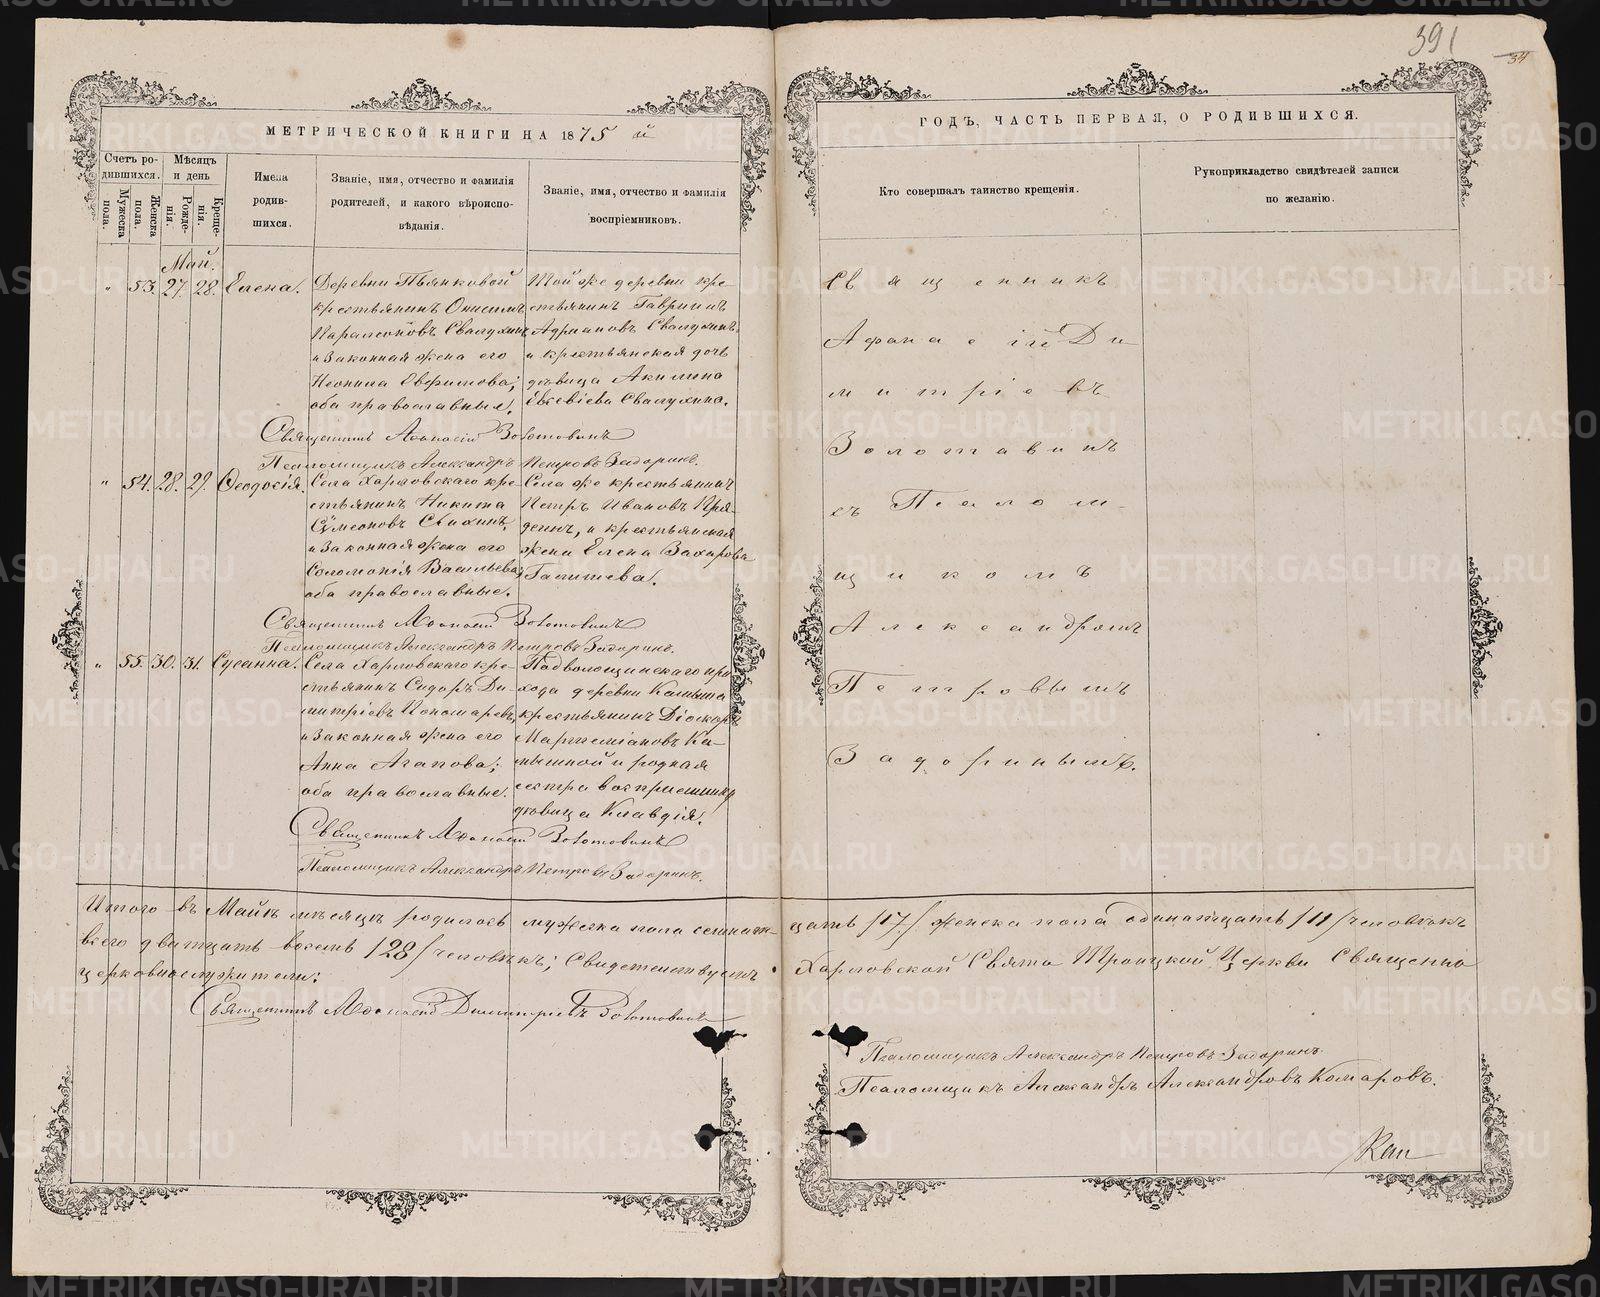 391
34
МЕТРИЧЕСКОЙ КНИГИ НА 1875 й
ГОДЪ, ЧАСТЬ ПЕРВАЯ, О РОДИВШИХСЯ.
Счетъ ро-
дившихся.
Мужеска пола.
Женска пола.
Мѣсяцъ
и день
Рожде-
нія.
Креще-
нія.
Имена
родив-
шихся.
Званіе, имя, отчество и фамилія
родителей, и какого вѣроиспо-
вѣданія.
Званіе, имя, отчество и фамилія
воспріемниковъ.
Кто совершалъ таинство крещенія.
Рукоприкладство свидѣтелей записи
по желанію.
Май.
" 53. 27. 28. Елена.
Деревни Пьянковой
крестьянинъ Онисимъ
Парамоновъ Свалухинъ
и законная жена его
Неонила Евфимова;
оба православные.
Той же деревни кре-
стьянинъ Гавріилъ
Адриановъ Свалухинъ
и крестьянская дочь
дѣвица Акилина
Евсевіева Свалухина.
Священникъ Афанасій Золотавинъ
Псаломщикъ Александръ Петровъ Задоринъ.
" 54. 28. 29. Ѳеодосія.
Села Харловскаго кре-
стьянинъ Никита
Сѵмеоновъ
и законная жена его
Соломонія Васильева;
оба православные.
Села же крестьянинъ
Петръ Ивановъ Пря-
деинъ, и крестьянская
жена Елена Захарова
Священникъ Афанасій Золотавинъ
Псаломщикъ Александръ Петровъ Задоринъ.
" 55. 30. 31. Сусанна.
Села Харловскаго кре-
стьянинъ Сидоръ Ди-
митріевъ Пономаревъ,
и законная жена его
Анна Агапова;
оба православные.
прихода деревни Камыша
крестьянинъ Діоскоръ
Мартиміановъ Ка-
мышной и родная
сестра воспріемника
дѣвица Клавдія.
Священникъ Афанасій Золотавинъ
Псаломщикъ Александръ Петровъ Задоринъ.
Священникъ
Афанасій Ди
митріевъ
Золотавинъ
съ Псалом-
щикомъ
Александромъ
Петровымъ
Задоринымъ.
Итого въ Маѣ мѣсяцѣ родилось мужеска пола семнат-
цать /17/ женска пола одинатцать /11/ человѣкъ
всего дватцать восемь /28/ человѣкъ; Свидетельствуемъ
Харловской Свято Троицкой Церкви Священно
церковнослужители:
Священникъ Афанасій Димитріевъ Золотавинъ
Псаломщикъ Александръ Петровъ Задоринъ
Псаломщикъ Александръ Александровъ Комаровъ.
METRIKI.GASO-URAL.RU